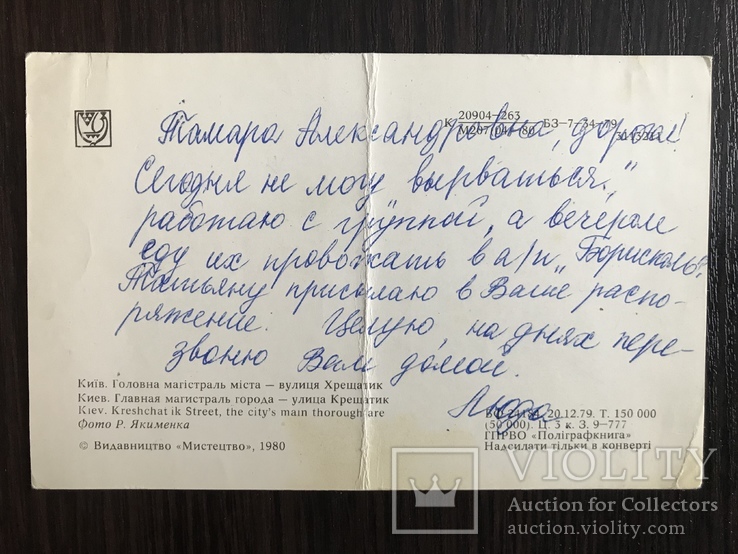 20904-263
К БЗ-7-34-79
М207(04)-80
Тамара Александровна, дорогая!
Сегодня не могу вырваться,
работаю с группой, а вечером
еду их провожать в а/п „Борисполь".
Татьяну присылаю в Ваше распо-
ряжение. Целую, на днях пере-
звоню Вам домой.
Люда
Київ. Головна магістраль міста — вулиця Хрещатик
Киев. Главная магистраль города — улица Крещатик
Kiev. Kreshchatik Street, the city's main thoroughfare
Фото Р. Якименка
© Видавництво «Мистецтво», 1980
20.12.79. Т. 150 000
(50 000). Ц. 3 к. З. 9—777
ГПРВО «Поліграфкнига»
Надсилати тільки в конверті
VIOLITY
Auction for Collectors
auction.violity.com